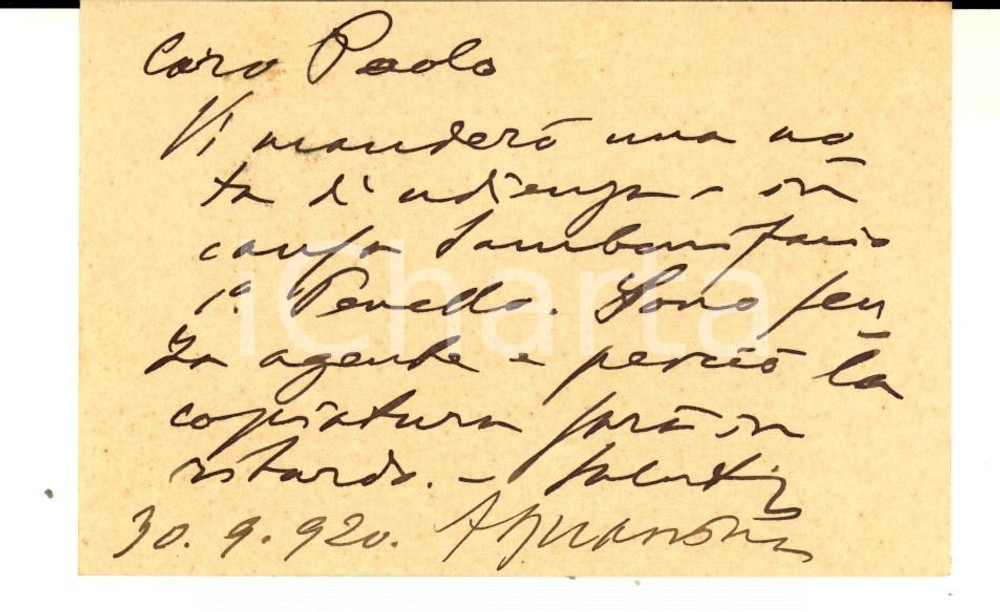 Caro Paolo
Vi manderò una no
ta d'udienza - in
causa Sambonifacio
1° Penello. Sono sen
za agente e perciò la
copiatura sarà in
ritardo. - Saluti
30.9.920.
iCharta